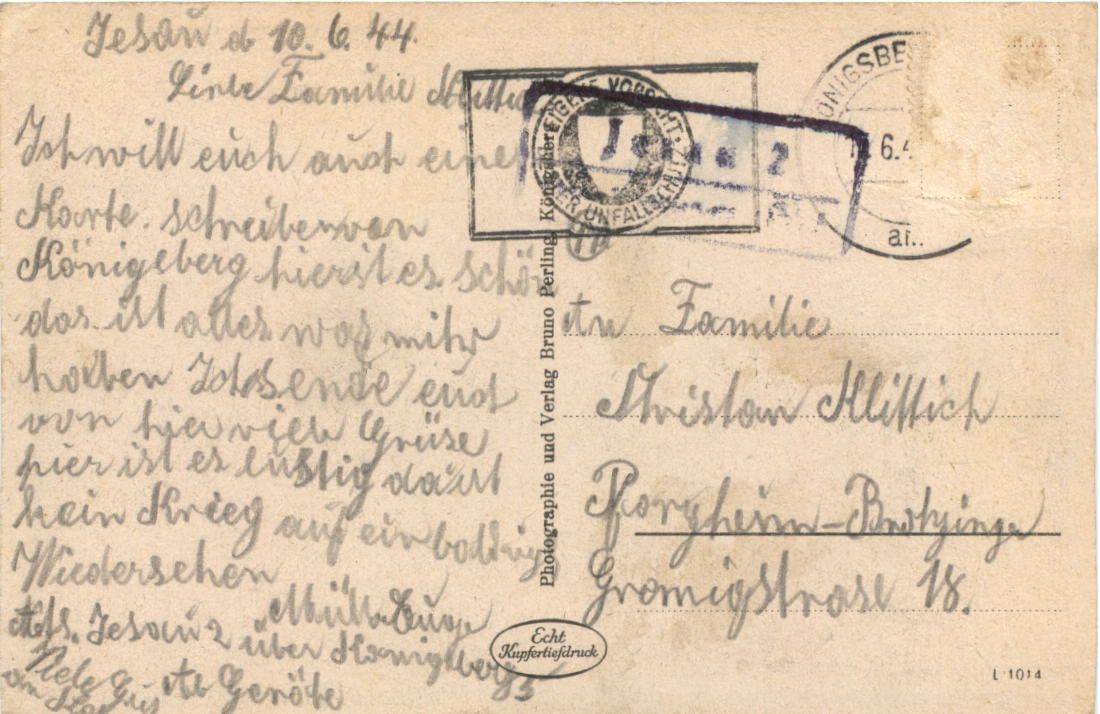 Jesau d 10. 6. 44.
Liebe Familie Klittich
Ich will euch auch eine
Karte schreiben von
Königsberg hier ist es schön
das ist alles was mihr
haben Ich sende euch
von hier viele Grüse
hier ist es lustig da ist
kein Krieg auf ein baldiges
Wiedersehen
Müller
Abs. Jesau 2 über Königsberg 5
Ab Geräte
EIGENE VORSICHT
DER UNFALLSCHUTZ
Jesau 2
KÖNIGSBE
6.4
Photographie und Verlag Bruno Perling, Königsberg
An Familie
Christian Klittich
Pforzheim-Brötzingen
18.
Echt
Kupfertiefdruck
L 1014